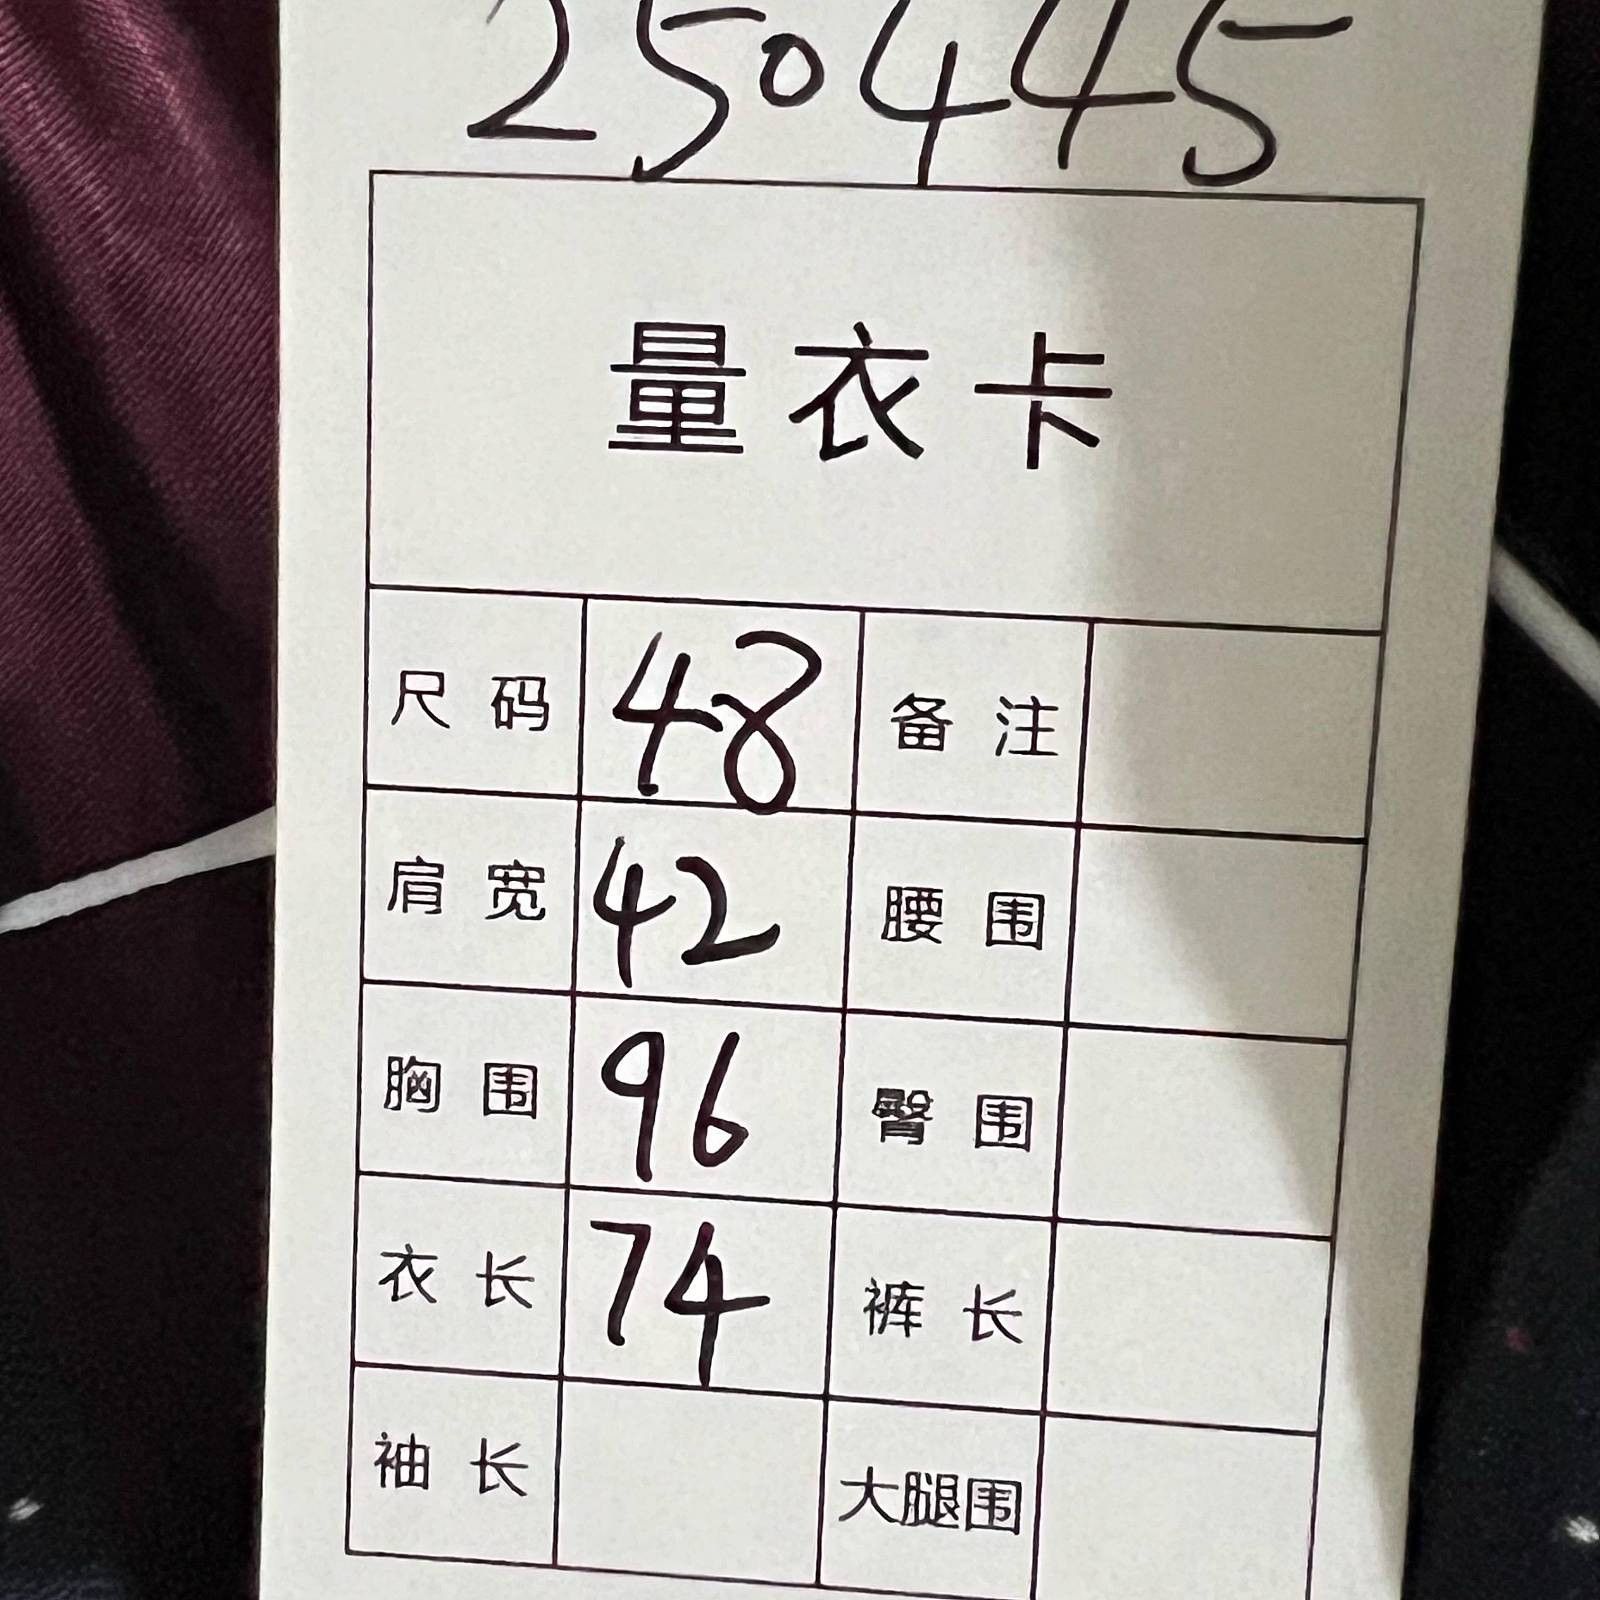 250445
量衣卡
尺码 48 备注
肩宽 42 腰围
胸围 96 臀围
衣长 74 裤长
袖长 大腿围